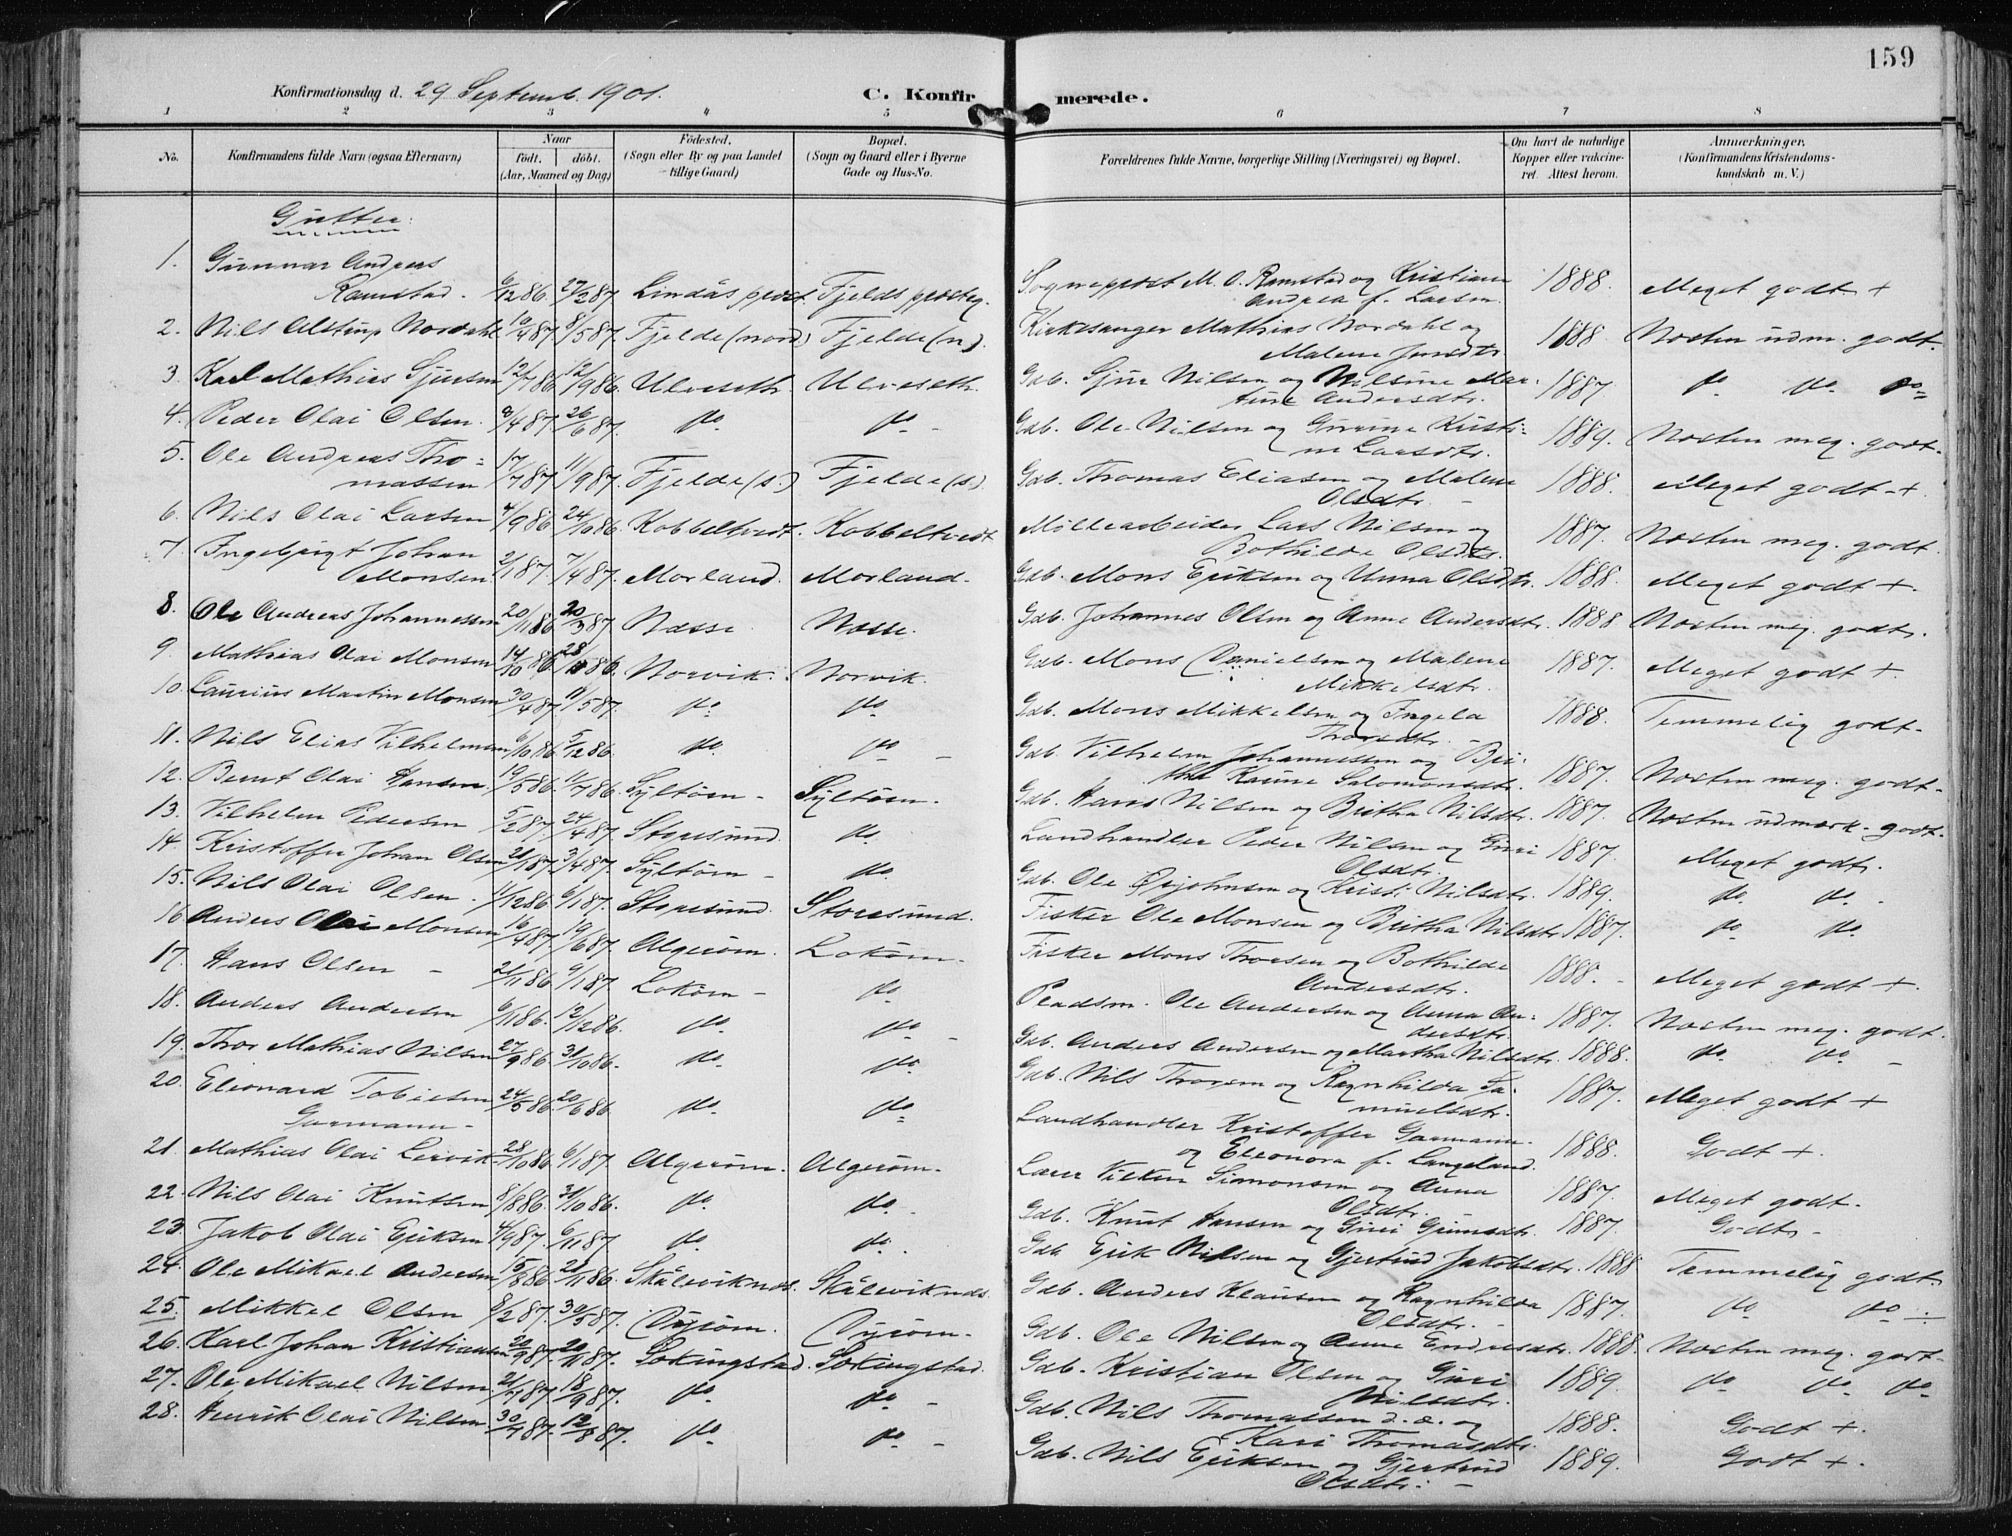 159
Konfirmationsdag d. 29 Septemb. 1901.
C. Konfirmerede.
1 2 3 4 5 6 7 8
No.
Konfirmandens fulde Navn (ogsaa Efternavn)
Naar
født. døbt.
(Aar, Maaned og Dag)
Fødested.
(Sogn eller By og paa Landet
tillige Gaard)
Bopæl.
(Sogn og Gaard eller i Byerne
Gade og Hus-No.
Forældrenes fulde Navne, borgerlige Stilling (Næringsvei) og Bopæl.
Om havt de naturlige
Kopper eller vakcine-
ret. Attest herom.
Anmærkninger.
(Konfirmandens Kristendoms-
kundskab m. V.)
Gutter:
1. Gunnar Andreas
Ramstad. 6/12 86. 27/2 87. Lindås prest. Fjelds presteg. Sogneprest M. O. Ramstad og Kristiane
Andrea f. Larsen. 1888. Meget godt +
2. Nils Alstrup Nordahl 10/4 87. 8/5 87. Fjelde (nord) Fjelde (n). Kirkesanger Mathias Nordahl og
Malene Jensdtr. 1888 Næsten udm. godt.
3. Karl Mathias Sjursen 12/7 86. 12/9 86. Ulveseth. Ulveseth. Gdb. Sjur Nilsen og Nilsine Mar-
tine Andersdtr. 1887. do do do
4. Peder Olai Olsen. 3/4 87. 26/6 87. do do Gdb. Ole Nilsen og Gurine Kristi-
ne Larsdtr. 1889. Næsten meg. godt.
5. Ole Andreas Tho-
massen 17/7 87 11/9 87. Fjelde (s.) Fjelde (s) Gdb. Thomas Eliasen og Malene
Olsdtr. 1888. Meget godt +
6. Nils Olai Larsen 4/9 86 24/10 86. Kobbeltvedt. Kobbeltvedt Møllearbeider Lars Nilsen og
Bothilde Olsdtr. 1887. Næsten meg. godt.
7. Ingebrigt Johan
Monsen. 2/1 87. 7/4 87. Morland. Morland. Gdb. Mons Eriksen og Unna Olsdtr. 1888. Meget godt +.
8. Ole Andreas Johannessen 20/11 86 20/3 87. Næsse. Næsse. Gdb. Johannes Olsen og Anne Andersdtr. 1888 Næsten meg. godt.
9. Mathias Olai Monsen 14/10 86. 28/10 86. Norvik. Norvik. Gdb. Mons Danielsen og Malene
Mikkelsdtr. 1887. Meget godt +
10. Laurius Martin Monsen 30/4 87. 11/5 87. do do Gdb. Mons Mikkelsen og Ingela
Thorsdtr. 1888. Temmelig godt.
11. Nils Elias Vilhelmsen 6/10 86. 5/12 86. do do Gdb. Vilhelm Johannessen og Bri-
tha Karine Salomonsdtr. 1887. Næsten meg. godt.
12. Bernt Olai Hansen. 19/5 86. 11/7 86. Syltøen Syltøen. Gdb. Hans Nilsen og Britha Nilsdtr. 1887. Næsten udmærk. godt.
13. Vilhelm Pedersen 5/2 87. 24/4 87. Storesund. do. Landhandler Peder Nilsen og Guri
Olsdtr. 1887. Meget godt.
14. Kristoffer Johan Olsen 21/1 87. 3/4 87. Syltøen do. Gdb. Ole Ørjohnsen og Kristi Nilsdtr. 1889. do. do.
15. Nils Olai Olsen. 11/12 86. 6/1 87. Storesund. Storesund. Fisker Ole Monsen og Britha Nilsdtr. 1887. do do.
16 Anders Olai Monsen 16/4 87. 19/6 87. Algerøen. Lokøen. Fisker Mons Thorsen og Bothilde
Andersdtr. 1888. Meget godt +.
17. Hans Olsen 21/11 86. 9/1 87. Lokøen do. Pladsm. Ole Andersen og Anna An-
dersdtr. 1887. Næsten meg. godt.
18. Anders Andersen 6/11 86. 12/12 86. do do Gdb. Anders Andersen og Martha Nilsdtr. 1888. do do
19. Thor Mathias Nilsen 27/9 86. 31/10 86. do do. Gdb. Nils Thorsen og Ragnhilda Sa-
muelsdtr. 1887. Meget godt +
20. Eleonard Tobiesen
Garmann 24/5 86. 20/6 86. do. do. Landhandler Kristoffer Garmann
og Eleonora f. Langeland. 1888. Godt +.
21. Mathias Olai Lervik 28/10 86 6/1 87. Algerøen. Algerøen. Lærer Vilken Simonsen og Anna
Olsdtr. 1887. Meget godt.
22. Nils Olai Knutsen 8/8 86. 31/10 86. do. do. Gdb. Knut Hansen og Guri Grimsdtr. 1887. Godt.
23. Jakob Olai Eriksen 4/9 87. 6/11 87 do. do. Gdb. Erik Nilsen og Gjertrud Jakobsdtr. 1888 Temmelig godt.
24. Ole Mikael Andersen 15/8 86. 21/11 86. Skåleviknds. Skåleviknds. Gdb. Anders Klausen og Ragnhilda
Olsdtr. 1887. do do
25. Mikkel Olsen 8/2 87. 30/5 87. Dyrøen. Dyrøen. Gdb. Ole Nilsen og Anne Endresdtr. 1888. Næsten meg. godt.
26. Karl Johan Kristiansen 20/9 87. 20/11 87. Sekingstad. Sekingstad. Gdb. Kristian Olsen og Guri
Nilsdtr. 1889. do do do
27. Ole Mikael Nilsen 21/7 87. 18/9 87. do do. Gdb. Nils Thomassen d. æ. og
Kari Thomasdtr. 1888. Godt +.
28. Henrik Olai Nilsen 30/4 87. 12/8 87. do do Gdb. Nils Eriksen og Gjertrud
Olsdtr. 1889. Godt +.